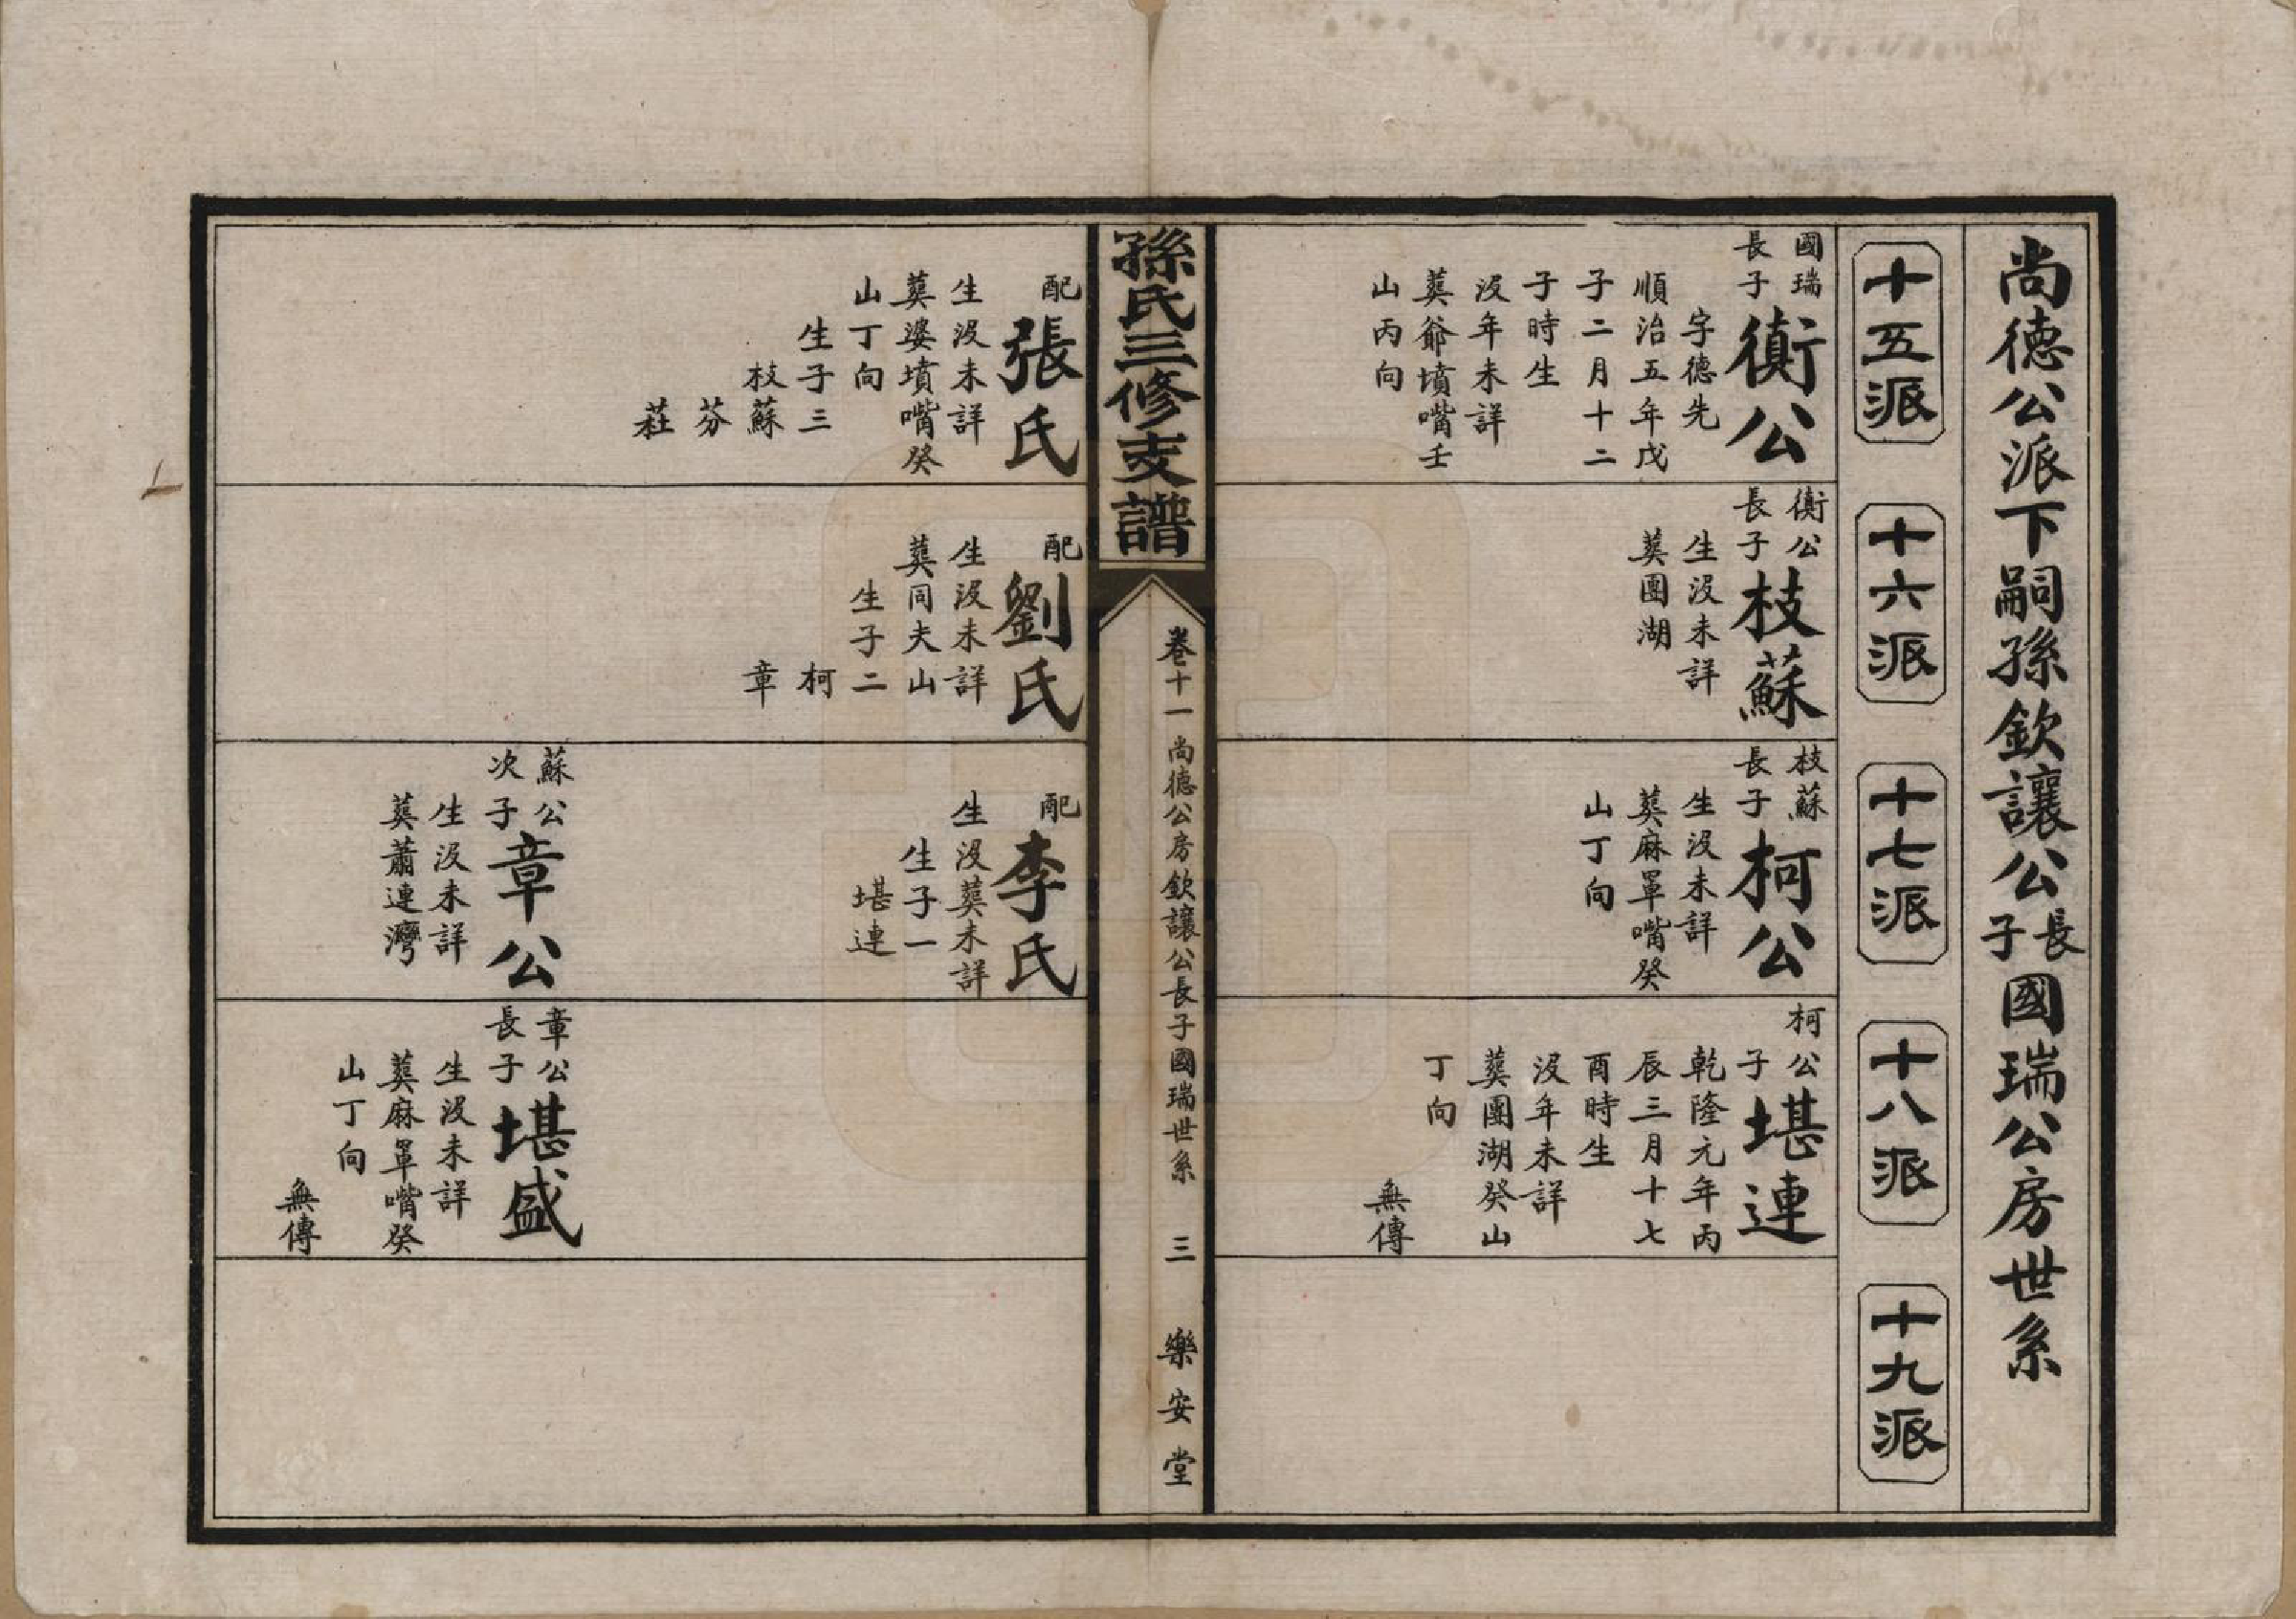 尚德公派下嗣孫欽讓公長子國瑞公房世系
十五派
十六派
十七派
十八派
十九派
國瑞
長子
衡公
字德先
順治五年戊
子二月十二
子時生
沒年未詳
葬爺墳嘴壬
山丙向
衡公
長子
枝蘇
生沒未詳
葬團湖
枝蘇
長子
柯公
生沒未詳
葬麻罩嘴癸
山丁向
柯公
子
堪連
乾隆元年丙
辰三月十七
酉時生
沒年未詳
葬團湖癸山
丁向
無傳
孫氏三修支譜
卷十一尚德公房欽讓公長子國瑞世系
三
樂安堂
配
張氏
生沒未詳
葬婆墳嘴癸
山丁向
生子三
枝蘇
芬
莊
配
劉氏
生沒未詳
葬同夫山
生子二
柯
章
配
李氏
生沒葬未詳
生子一
堪連
蘇公
次子
章公
生沒未詳
葬蕭連灣
章公
長子
堪盛
生沒未詳
葬麻罩嘴癸
山丁向
無傳